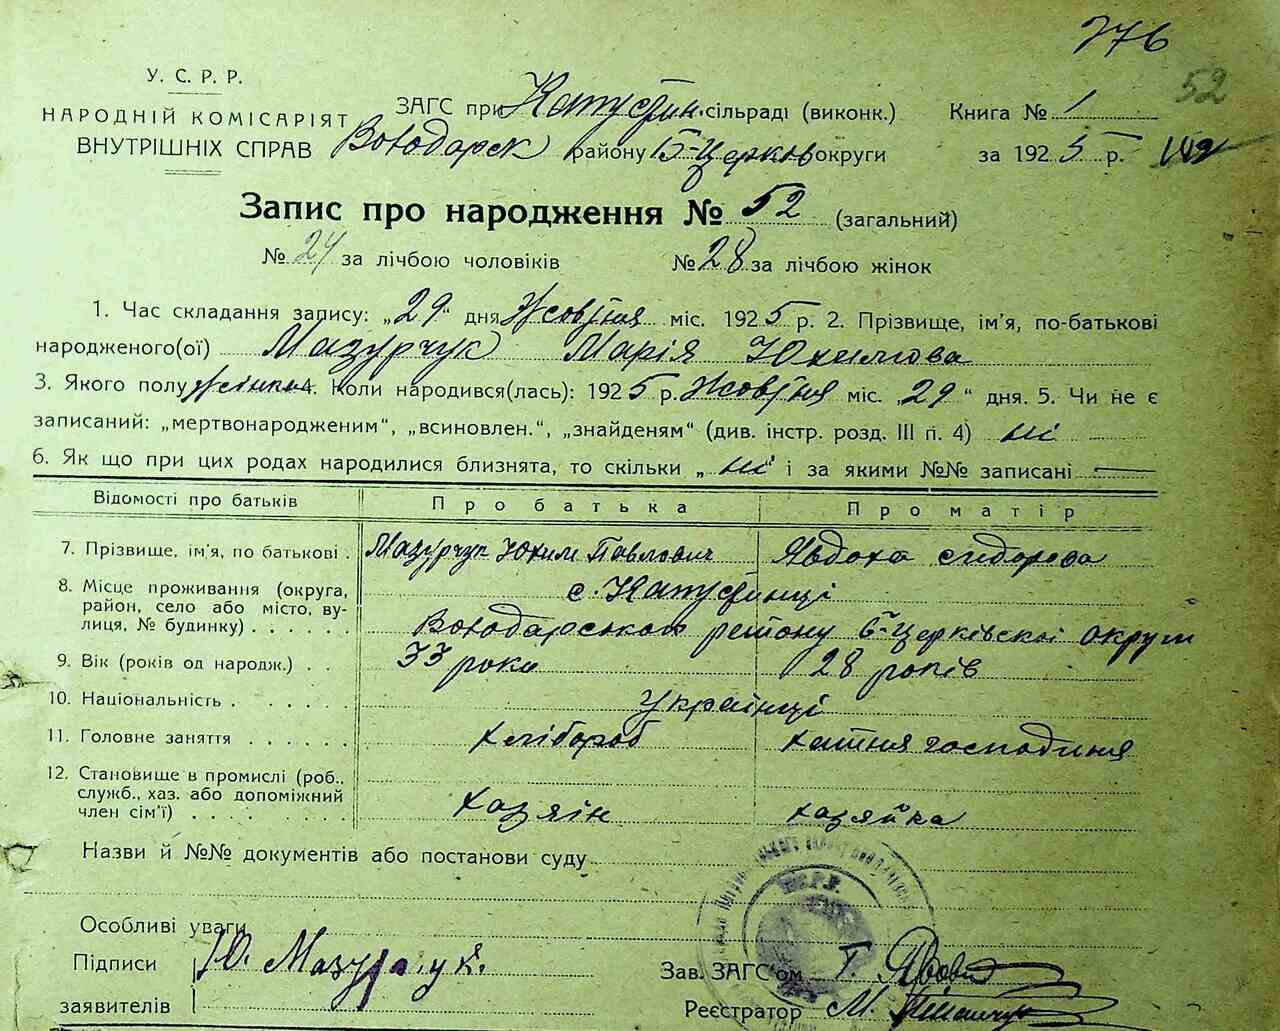 376
52
У. С. Р. Р.
НАРОДНІЙ КОМІСАРІЯТ
ВНУТРІШНІХ СПРАВ
ЗАГС при Капустин. сільраді (виконк.) Книга № 1
Володарск району Б-Церків округи за 1925 р.
Запис про народження № 52 (загальний)
№ 24 за лічбою чоловіків № 28 за лічбою жінок
1. Час складання запису: „29" дня Жовтня міс. 1925 р. 2. Прізвище, ім'я, по-батькові
народженого(ої) Мазурчук Марія Юхимова
3. Якого полу жінка 4. Коли народився(лась): 1925 р. Жовтня міс. „29" дня. 5. Чи не є
записаний: „мертвонародженим", „всиновлен.", „знайденям" (див. інстр. розд. III п. 4) ні
6. Як що при цих родах народилися близнята, то скільки „ ні і за якими №№ записані —
Відомості про батьків Про батька Про матір
7. Прізвище, ім'я, по батькові . Мазурчук Юхим Павлович Явдоха Сидорова
8. Місце проживання (округа, район, село або місто, ву-
лиця, № будинку) . . . . . . с. Капустинці
Володарського району Б-Церківскої округи
9. Вік (років од народж.) . . 33 роки 28 років
10. Національність . . . . . . Українці
11. Головне заняття . . . . . . хлібороб хатня господиня
12. Становище в промислі (роб.,
служб., хаз. або допоміжний
член сім'ї) . . . . . . . . хазяін хазяйка
Назви й №№ документів або постанови суду
Особливі уваги
Підписи Ю. Мазурчук.
заявителів
Зав. ЗАГС'ом Г.
Реєстратор М.